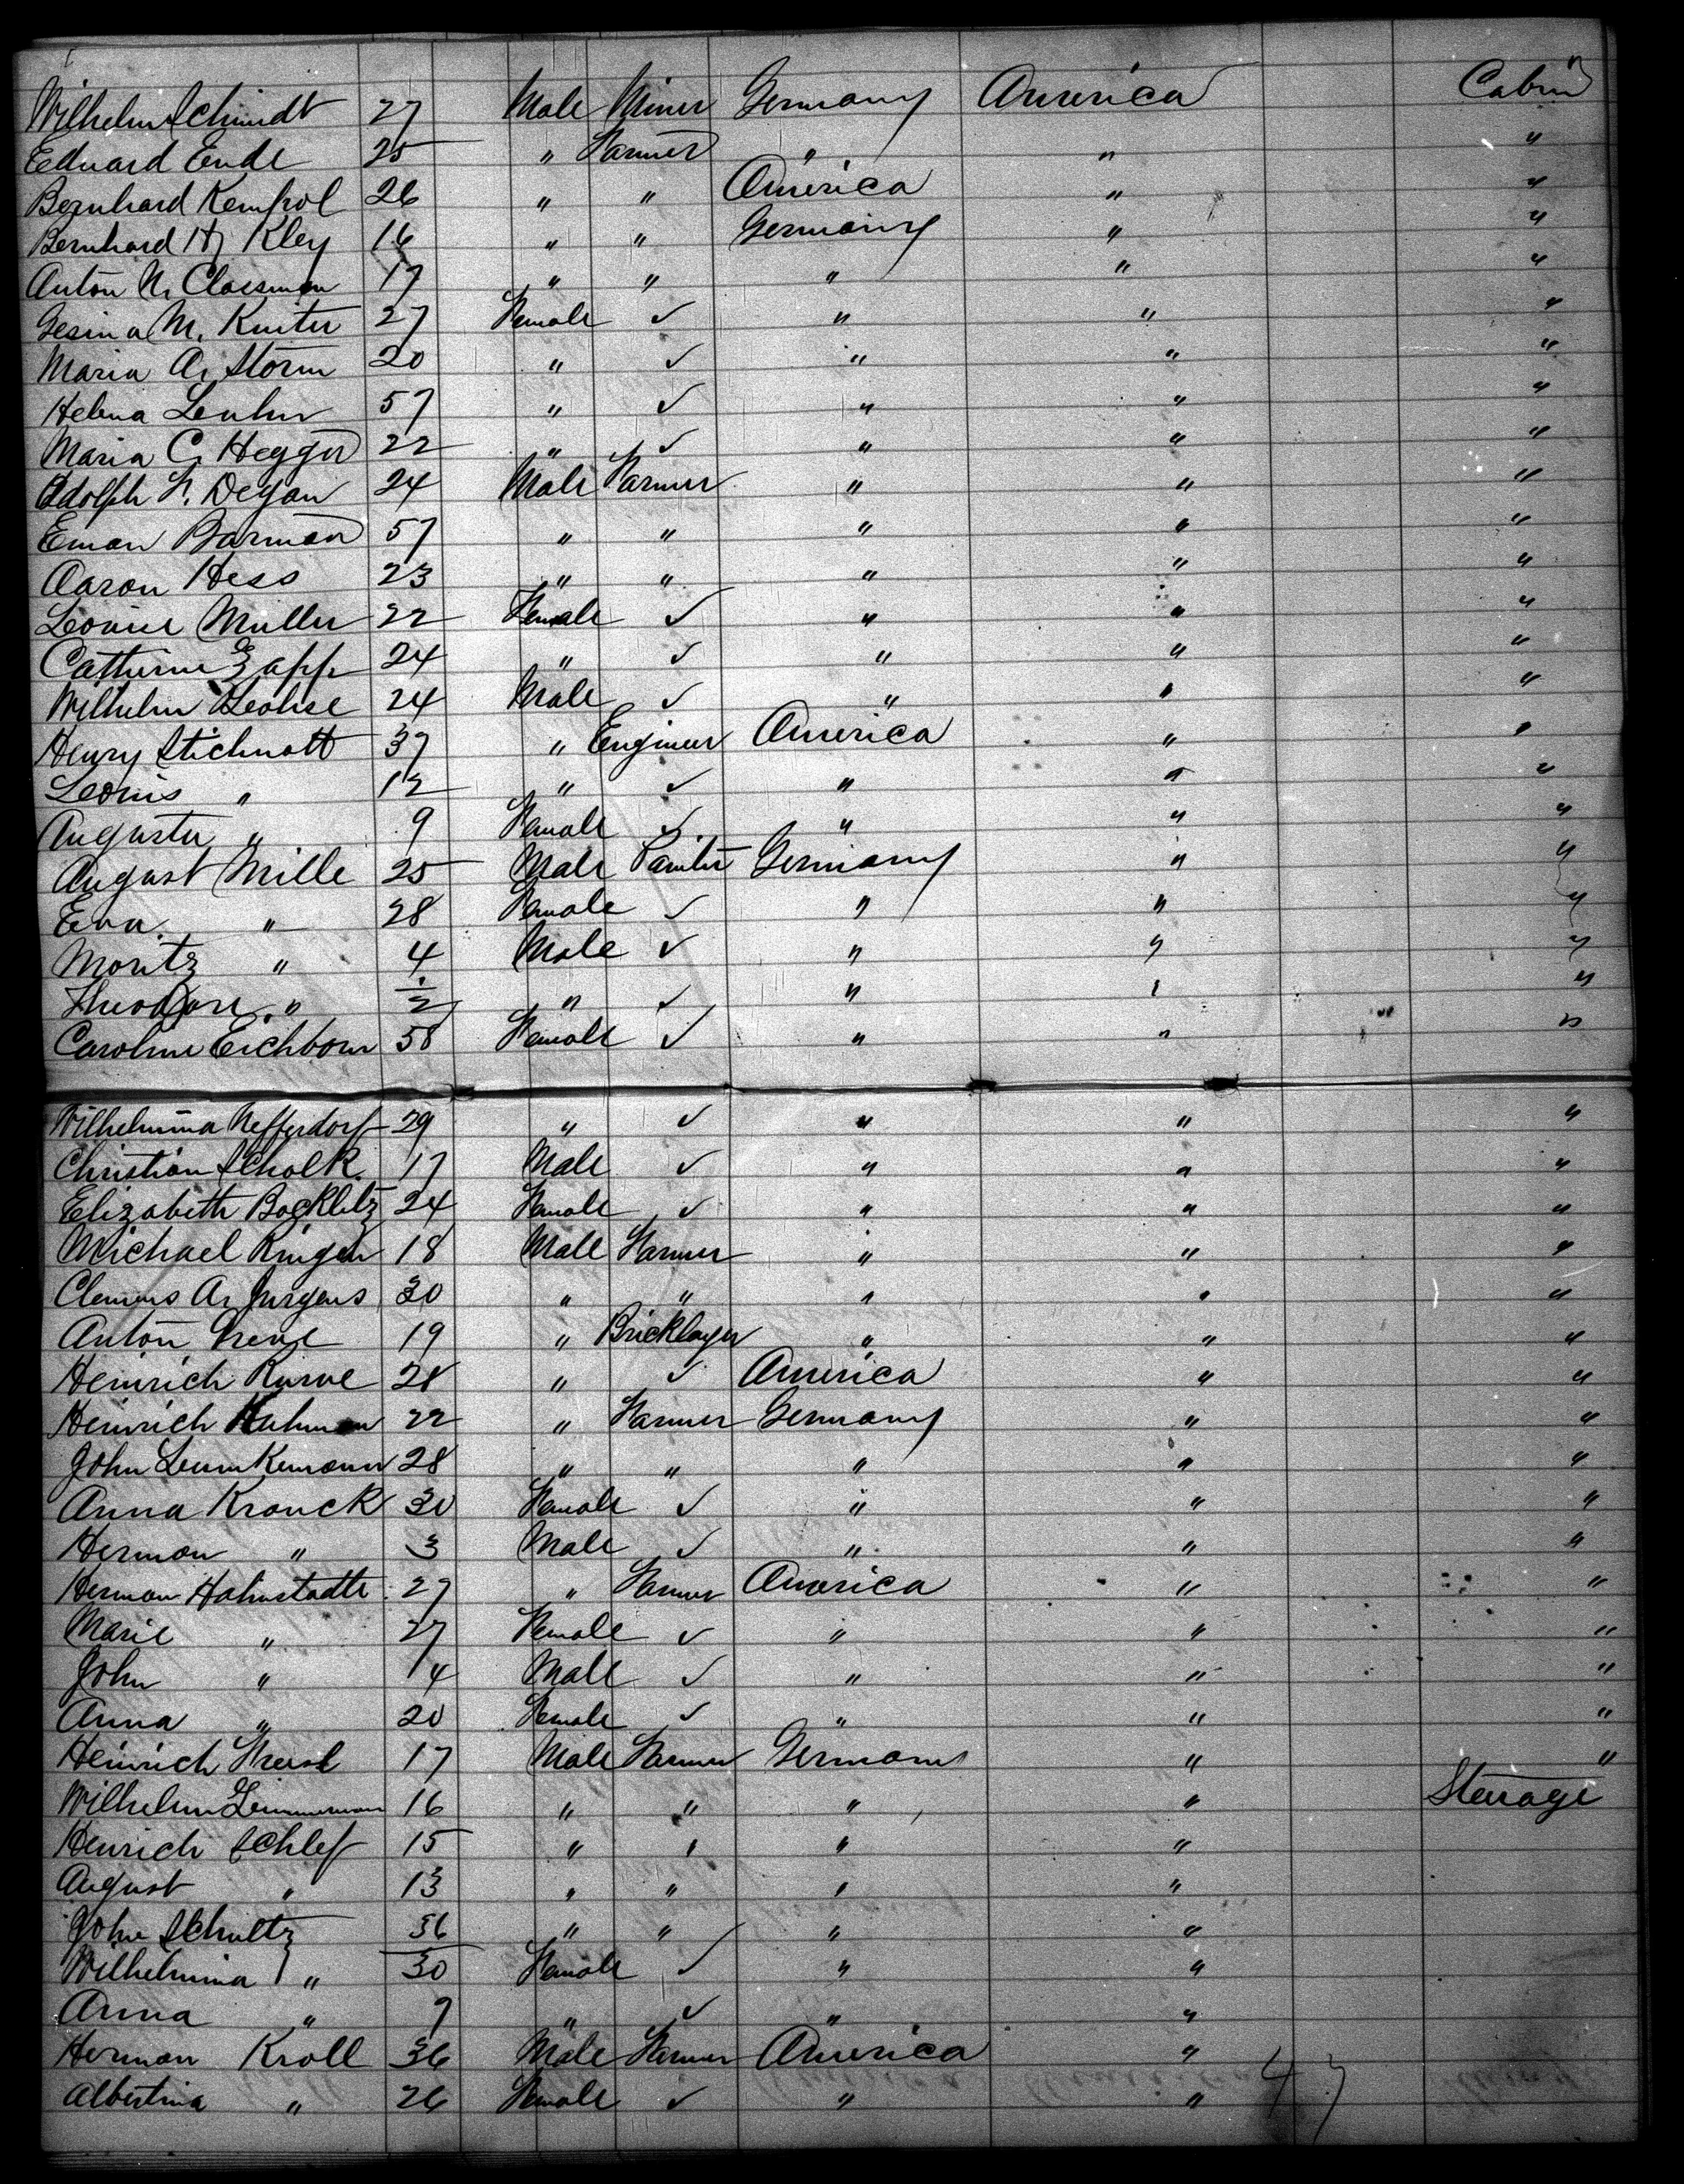 Wilhelm Schmidt 27 Male Miner Germany America Cabin
Eduard Ende 25 " Farmer " " "
Bernhard Kempol 26 " " America " "
Bernhard H. Kley 16 " " Germany " "
Anton N. Classman 17 " " " " "
Gesina M. Kuiter 27 Female ✓ " " "
Maria A. Storm 20 " ✓ " " "
Helena 57 " ✓ " " "
Maria C. Hegger 22 " ✓ " " "
Adolph Degan 24 Male Farmer " " "
Eman Barman 57 " " " " "
Aaron Hess 23 " " " " "
Leonie Muller 22 Female ✓ " " "
Catherine Zapp 24 " ✓ " " "
Wilhelm 24 Male ✓ " " "
Henry Stichnott 37 " Engineer America " "
Leonis " 12 " ✓ " " "
Augusta " 9 Female ✓ " " "
August Mille 25 Male Painter Germany " "
Eva " 28 Female ✓ " " "
Moritz " 4 Male ✓ " " "
Theodore " 1/2 " ✓ " " "
Caroline Eichborn 58 Female ✓ " " "
Wilhelmina Neffsdorf 29 " ✓ " " "
Christian Scholk 17 Male ✓ " " "
Elizabeth Bocklitz 24 Female ✓ " " "
Michael Ringen 18 Male Farmer " " "
Clemens A. Jurgens 30 " " " " "
Anton Greve 19 " Bricklayer " " "
Heinrich Kurve 28 " ✓ America " "
Heinrich Kuhman 22 " Farmer Germany " "
John 28 " " " " "
Anna Kronck 30 Female ✓ " " "
Herman " 3 Male ✓ " " "
Herman Hahnstadte 27 " Farmer America " "
Marie " 27 Female ✓ " " "
John " 4 Male ✓ " " "
Anna " 20 Female ✓ " " "
Heinrich 17 Male Farmer Germany " "
Wilhelm Zimmerman 16 " " " " Steerage
Henrich Schlef 15 " " " "
August " 13 " " " "
John Schultz 36 " " " "
Wilhelmina " 30 Female ✓ " "
Anna " 9 " ✓ " "
Herman Kroll 36 Male Farmer America "
Albertina " 26 Female ✓ " "
47